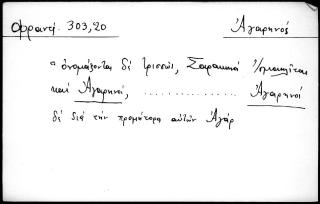 Φραντζ. 303,20 Ἀγαρηνός
" ὀνομάζονται δὲ τρισσῶς, Σαρακηνοὶ Ἰσμαηλῖται
καὶ Ἀγαρηνοί, .................. Ἀγαρηνοί
δὲ διὰ τὴν προμήτορα αὐτῶν Ἀγάρ